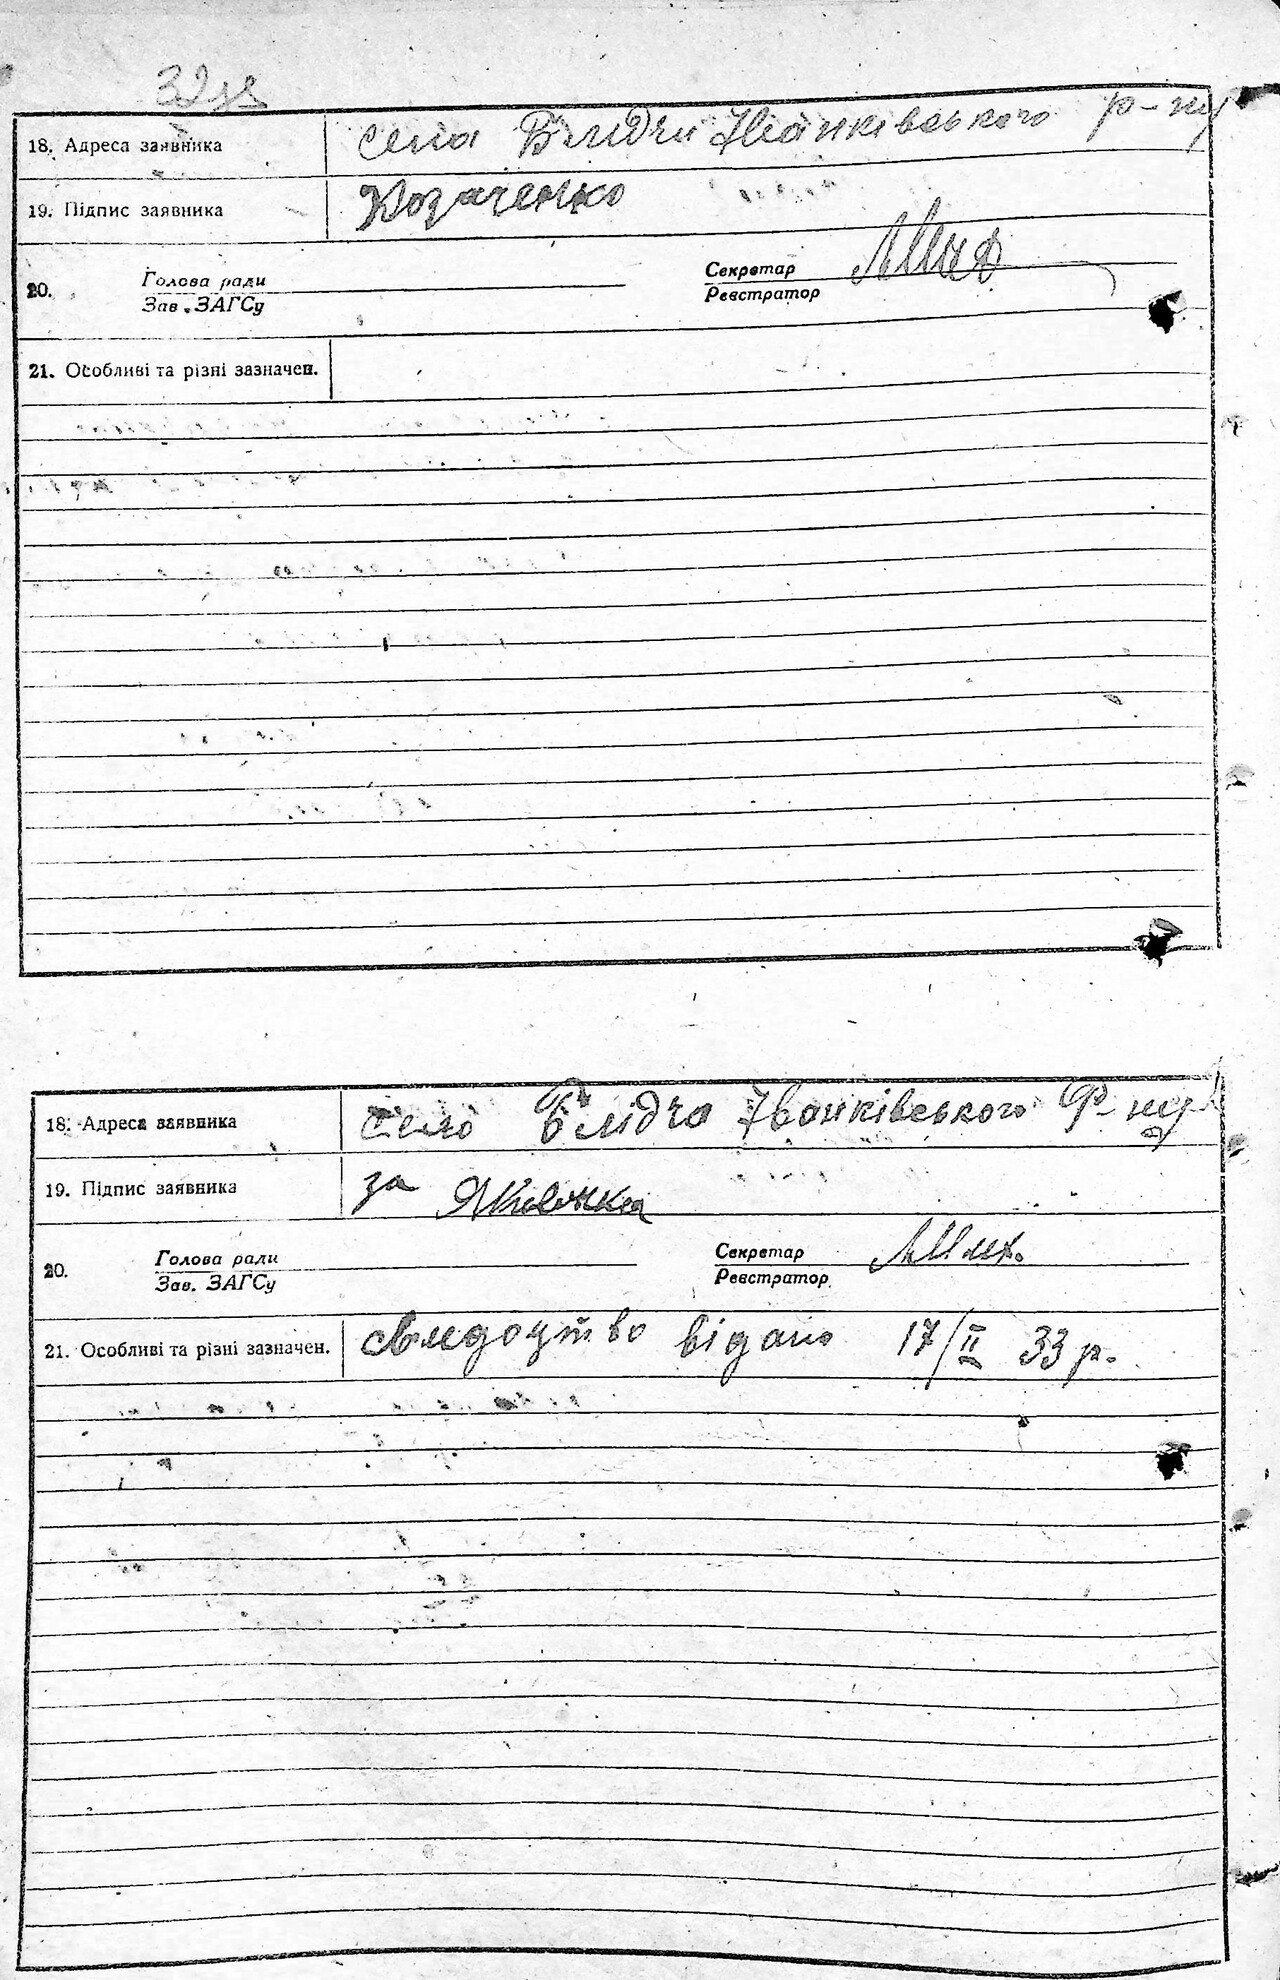 32 зв
18. Адреса заявника села Блидчи Іванківського р-ну
19. Підпис заявника Козаченко
20. Голова ради Зав. ЗАГСу Секретар Реєстратор
21. Особливі та різні зазначен.
18. Адреса заявника село Блідча Іванківського р-ну
19. Підпис заявника за
20. Голова ради Зав. ЗАГСу Секретар Реєстратор
21. Особливі та різні зазначен. свидоцтво відано 17/II 33 р.